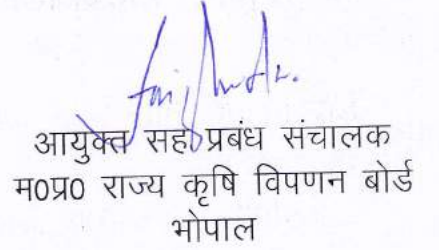 आयुक्त सह प्रबंध संचालक
म०प्र० राज्य कृषि विपणन बोर्ड
भोपाल